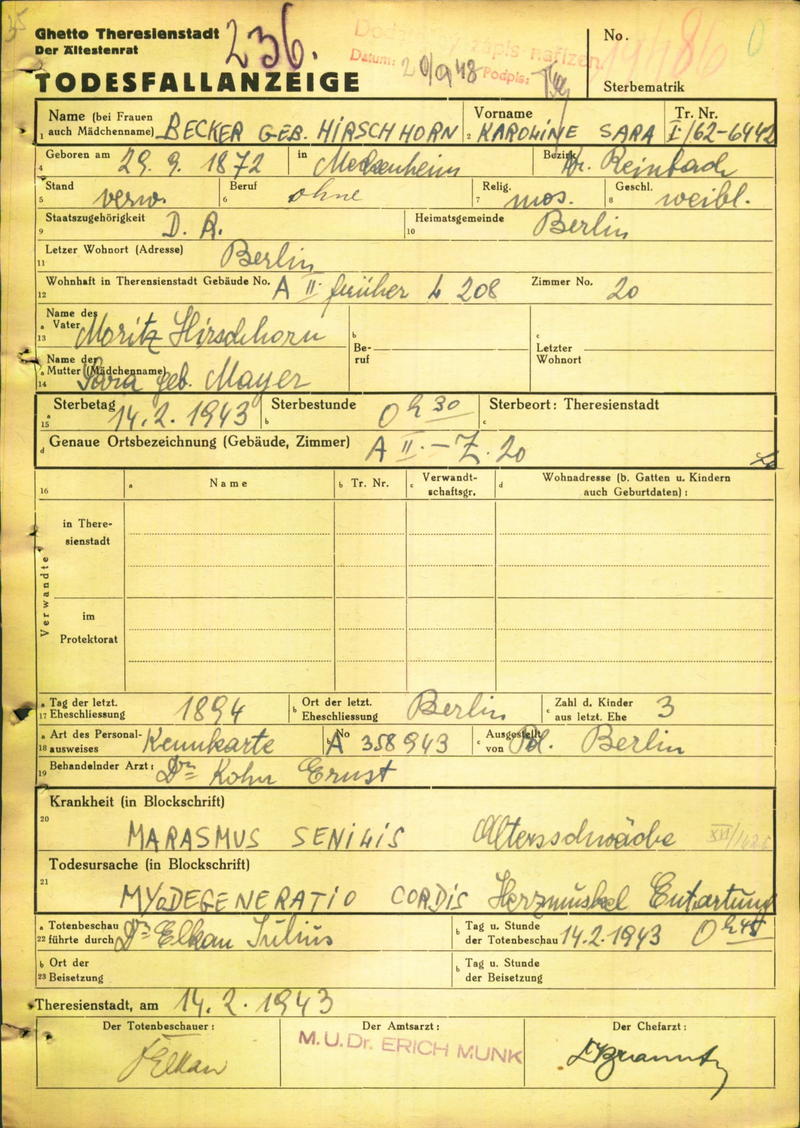 Ghetto Theresienstadt 236. No.
Der Ältestenrat
Datum: Podpis:
TODESFALLANZEIGE Sterbematrik
Name (bei Frauen Vorname Tr. Nr.
1 auch Mädchenname) BECKER GEB. HIRSCHHORN 2 KAROLINE SARA I/62-6442
Geboren am 29. 9. 1872 in Meckenheim Bezirk Kr. Reinbach
4
Stand verw. Beruf ohne Relig. mos. Geschl. weibl.
5 6 7 8
Staatszugehörigkeit D. R. Heimatsgemeinde Berlin
9 10
Letzer Wohnort (Adresse) Berlin
11
Wohnhaft in Theresienstadt Gebäude No. A II früher L 208 Zimmer No. 20
12
Name des
a Vater Moritz Hirschhorn b c
13 Be- Letzter
Name der ruf Wohnort
a Mutter (Mädchenname) Sara geb. Mayer
14
Sterbetag 14. 2. 1943 Sterbestunde 0 h 30 Sterbeort: Theresienstadt
a 15 b c
d Genaue Ortsbezeichnung (Gebäude, Zimmer) A II. - Z. 20
16 a Name b Tr. Nr. c Verwandt- schaftsgr. d Wohnadresse (b. Gatten u. Kindern
auch Geburtdaten) :
Verwandte
in There-
sienstadt
im
Protektorat
a Tag der letzt. 1894 b Ort der letzt. Berlin c Zahl d. Kinder 3
17 Eheschliessung Eheschliessung aus letzt. Ehe
a Art des Personal- Kennkarte b No A 358943 c Ausgestellt Pol. Berlin
18 ausweises von
19 Behandelnder Arzt: Dr. Kohn Ernst
Krankheit (in Blockschrift)
20
MARASMUS SENILIS Altersschwäche
Todesursache (in Blockschrift)
21
MYODEGENERATIO CORDIS Herzmuskel Entartung
a Totenbeschau b Tag u. Stunde
22 führte durch Dr Elkan Julius der Totenbeschau 14.2.1943 0 h 45
b Ort der b Tag u. Stunde
23 Beisetzung der Beisetzung
Theresienstadt, am 14. 2. 1943
Der Totenbeschauer: Der Amtsarzt: Der Chefarzt:
Elkan M. U. Dr. ERICH MUNK